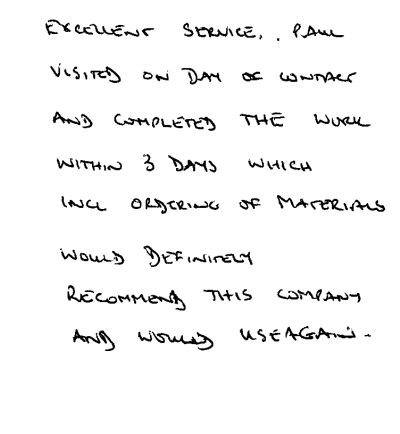 EXCELLENT SERVICE, . PAUL
VISITED ON DAY OF CONTACT
AND COMPLETED THE WORK
WITHIN 3 DAYS WHICH
INCL ORDERING OF MATERIALS
WOULD DEFINITELY
RECOMMEND THIS COMPANY
AND WOULD USE AGAIN.